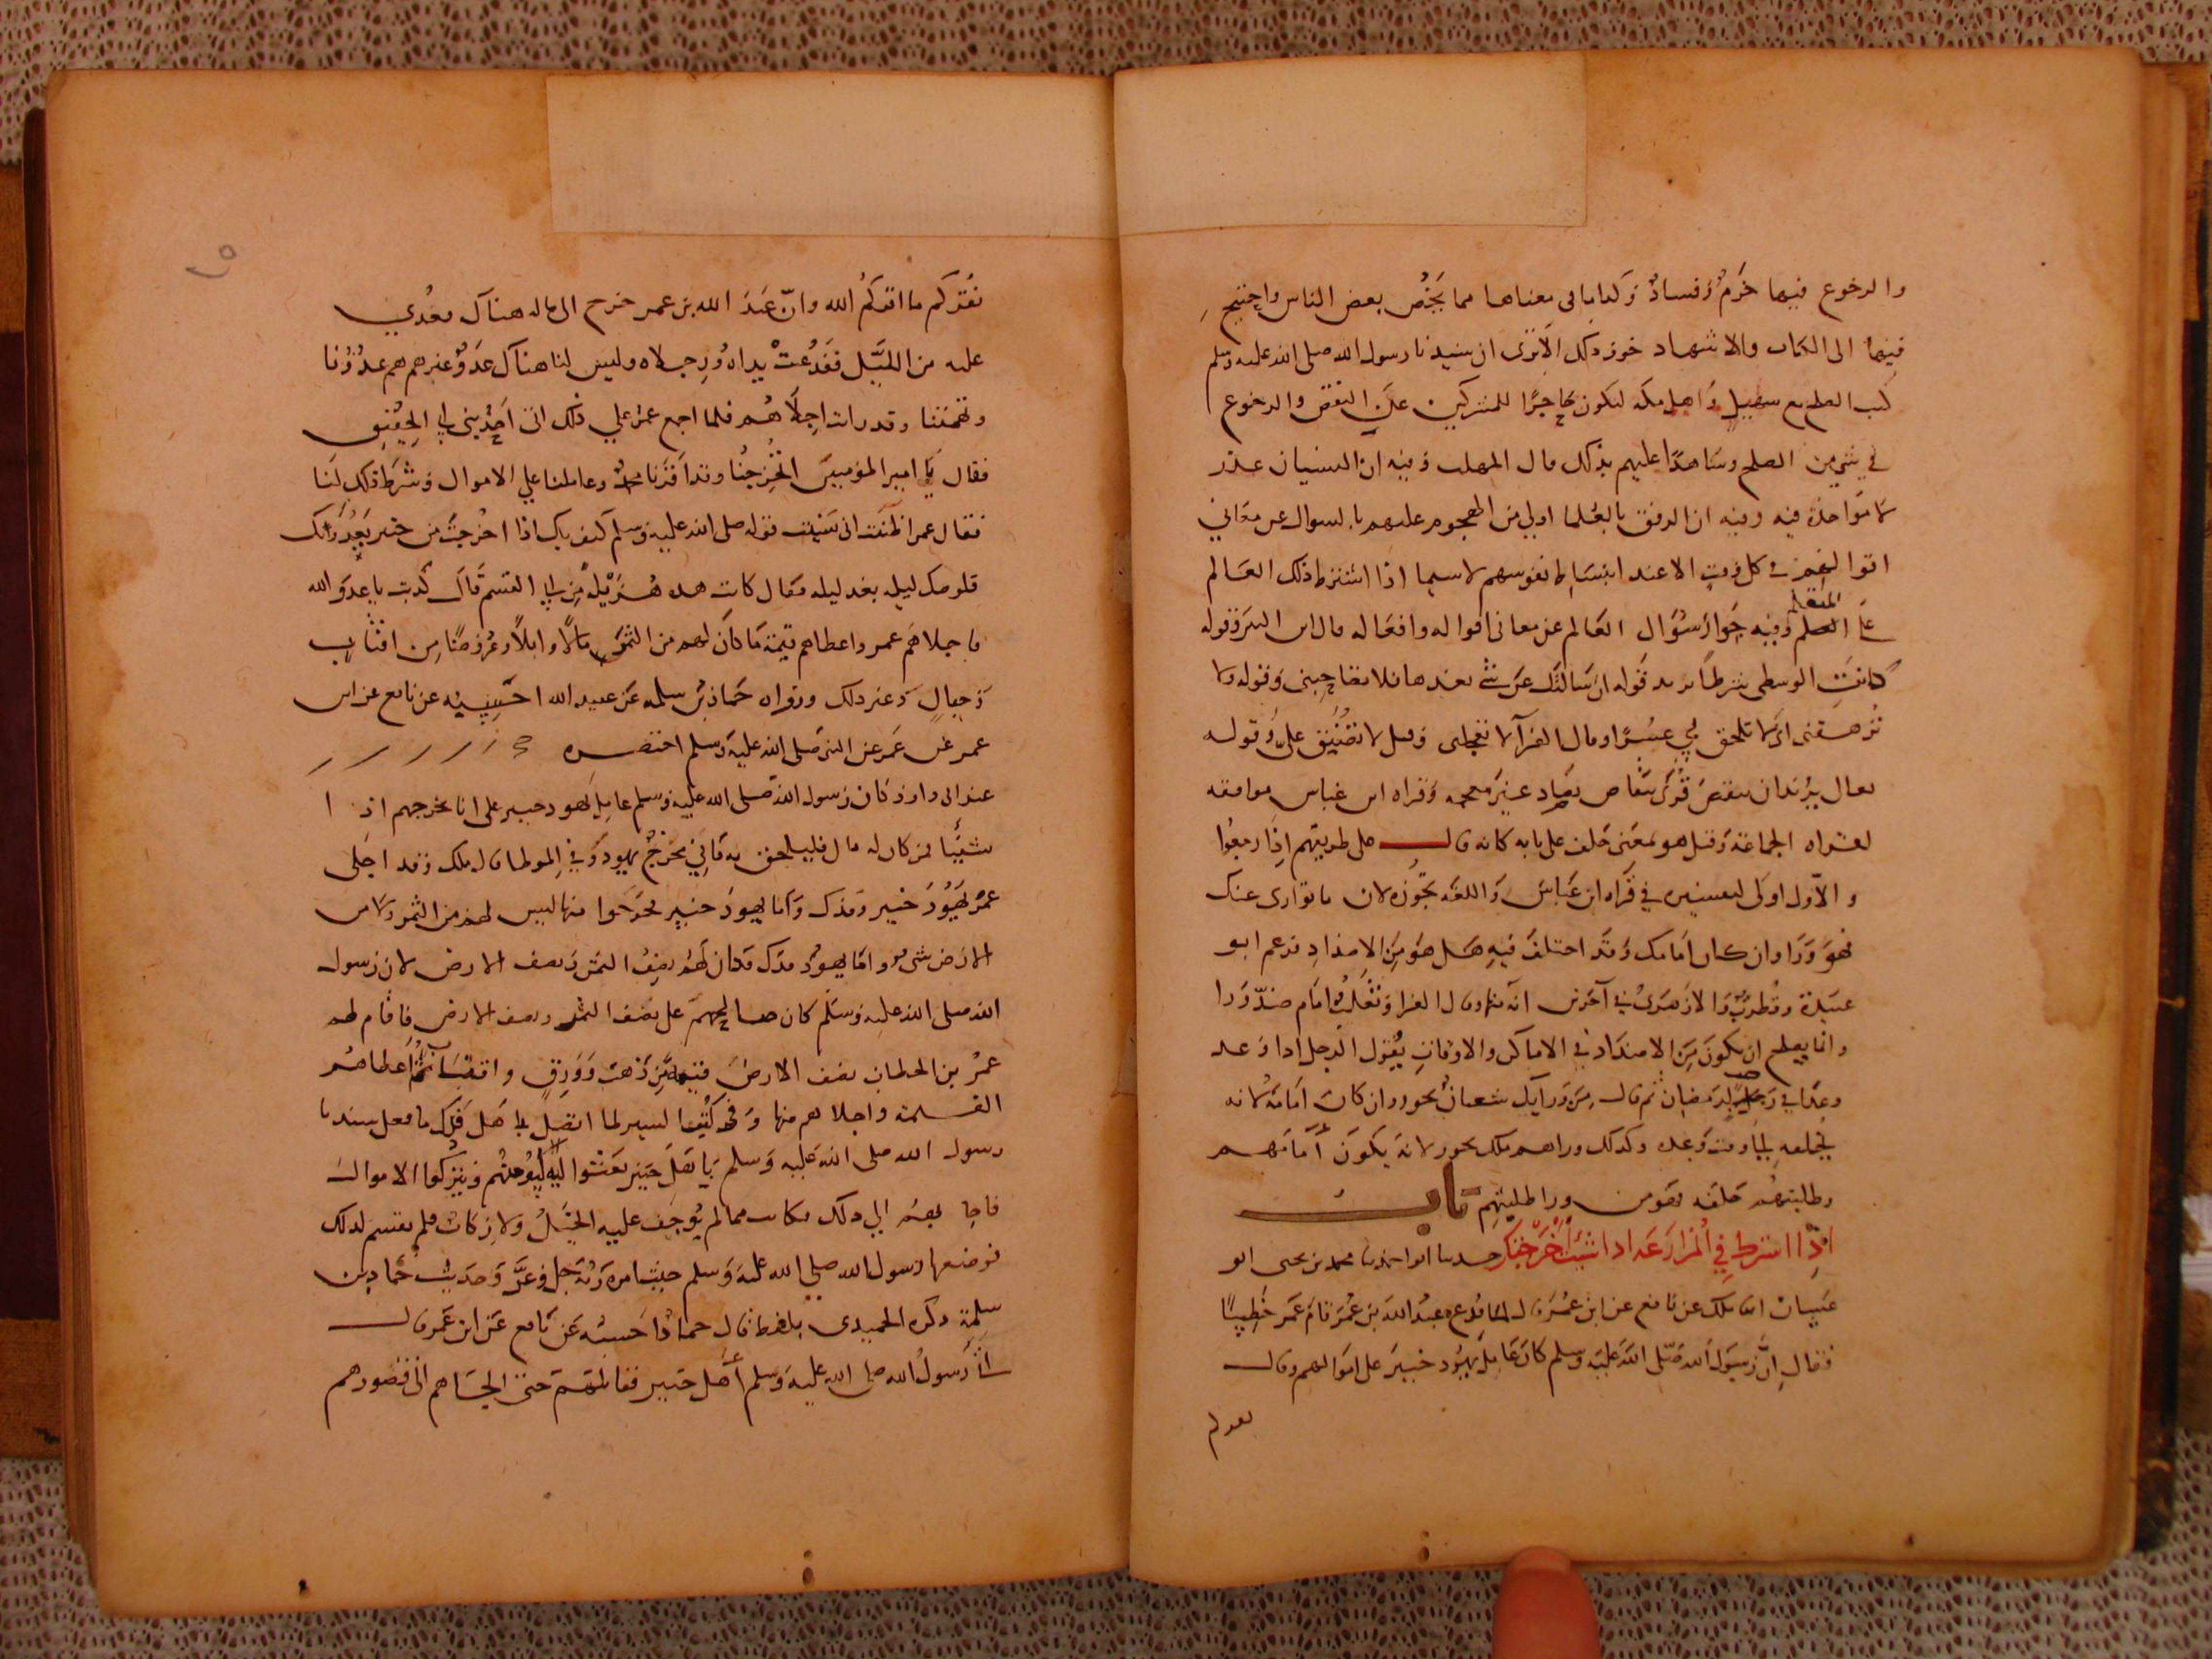 والرجوع فيها خرم وفساد وكذا ما في معناها مما يخص بعض الناس واحتيج
فيها الى الكتاب والاشهاد خوف ذلك الا ترى ان سيدنا رسول الله صلى الله عليه وسلم
كتب الصلح مع سهيل واهل مكة ليكون حاجزا للمشركين عن النقض والرجوع
في شي من الصلح وشاهدا عليهم بذلك قال المهلب وفيه ان النسيان عذر
لا مواخذة فيه وفيه ان الرفق بالعلما اولي من الهجوم عليهم بالسوال عن معاني
اقوالهم في كل وقت الا عند انبساط نفوسهم لا سيما اذا اشترط ذلك العالم
على المتعلم وفيه جواز سؤال العالم عن معاني اقواله وافعاله قال ابن التين وقوله
كانت الوسطى شرطا يريد قوله ان سالتك عن شي بعدها فلا تصاحبني وقوله ولا
ترهقني اى لا تلحق بي عسرا وقال الفرا لا تعجلني وقيل لا تضيق علي وقوله
تعال يريد ان ينقض قرئ ينقاص بصاد غير معجمه وقراه ابن عباس موافقه
لقراه الجماعة وقيل هو بمعنى خلف على بابه كانه قال على طريقهم اذا رجعوا
والاول اولى لتفسيره في قراه ابن عباس واللغه تجوزه لان ما توارى عنك
فهو ورا وان كان امامك وقد اختلف فيه هل هو من الاضداد فزعم ابو
عبيدة وقطرب والازهري في آخرين انه منها وقال الفرا وثعلب امام ضد ورا
وانما يصلح ان يكون من الاضداد في الاماكن والاوقات يقول الرجل اذا وعد
وعدا في رجب لرمضان ثم قال من ورايك شعبان يجوز وان كان امامه لانه
يخلفه الى وقت وعده وكذلك وراهم ملك يجوز لانه يكون أمامهم
وطلبتهم خلفه فهو من ورا طلبتهم باب
اذا اشترط في المزارعة اذا شئت اخرجتك حدثنا ابو احمد ثنا محمد بن يحيى ابو
غسان انا ملك عن نافع عن ابن عمر قال لما فدع عبد الله بن عمر قام عمر خطيبا
فقال ان رسول الله صلى الله عليه وسلم كان عامل يهود خيبر على اموالهم وقال
نقركم
نقركم ما اقركم الله وان عبد الله بن عمر خرج الى ماله هناك فعدي
عليه من الليل ففدعت يداه ورجلاه وليس لنا هناك عدو غيرهم هم عدونا
وتهمتنا وقد رايت اجلاهم فلما اجمع عمر علي ذلك اتى احد بني ابي الحقيق
فقال يا امير المؤمنين اتخرجنا وقد اقرنا محمد وعاملنا علي الاموال وشرط ذلك لنا
فقال عمر اظننت اني نسيت قوله صلى الله عليه وسلم كيف بك اذا اخرجت من خيبر تعدو بك
قلوصك ليله بعد ليله فقال كانت هذه هزيلة من ابي القسم قال كذبت يا عدو الله
فاجلاهم عمر واعطاهم قيمة ما كان لهم من الثمر مالا وابلا وعروضا من اقتاب
وحبال وغير ذلك ورواه حماد بن سلمه عن عبيد الله احسبه عن نافع عن ابن
عمر عن عمر عن النبي صلى الله عليه وسلم اختصره
عند ابي داود كان رسول الله صلى الله عليه وسلم عامل يهود خيبر على انا نخرجهم اذا
شينا فمن كان له مال فليلحق به فاني مخرج يهود وفي الموطا قال ملك وقد اجلى
عمر يهود خيبر وفدك واما يهود خيبر فخرجوا منها ليس لهم من الثمر ولا من
الارض شي واما يهود فدك فكان لهم نصف الثمر ونصف الارض لان رسول
الله صلى الله عليه وسلم كان صالحهم على نصف الثمر ونصف الارض فاقام لهم
عمر بن الخطاب نصف الارض قيمة من ذهب وورق واقتاب ثم اعطاهم
القيمة واجلاهم منها وفي كتب السير لما اتصل باهل فدك ما فعل سيدنا
رسول الله صلى الله عليه وسلم باهل خيبر بعثوا اليه ليؤمنهم ويتركوا الاموال
فاجابهم الي ذلك فكانت مما لم يوجف عليه بخيل ولا ركاب فلم تقسم لذلك
فوضعها رسول الله صلي الله عليه وسلم حيث امره ربه جل وعز وحديث حماد بن
سلمة ذكره الحميدي بلفظ قال حماد احسبه عن نافع عن ابن عمر قال
اتى رسول الله صلى الله عليه وسلم أهل خيبر فقاتلهم حتى الجاهم الى قصورهم